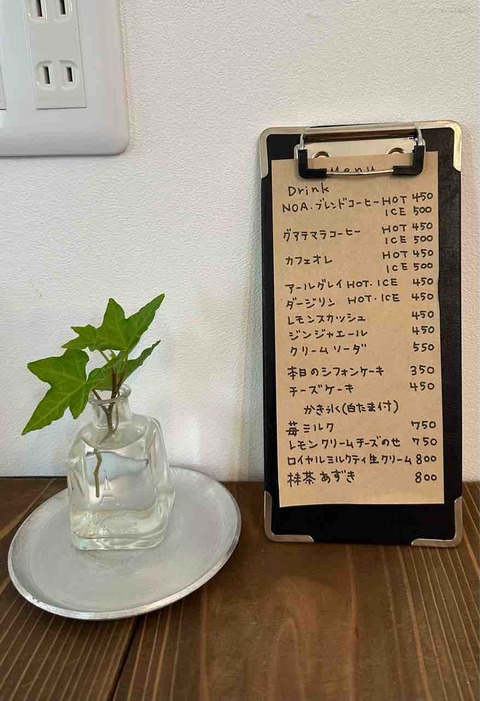 Menu
Drink
NOA.ブレンドコーヒー HOT 450
ICE 500
グアテマラコーヒー HOT 450
ICE 500
カフェオレ HOT 450
ICE 500
アールグレイ HOT・ICE 450
ダージリン HOT・ICE 450
レモンスカッシュ 450
ジンジャエール 450
クリームソーダ 550
本日のシフォンケーキ 350
チーズケーキ 450
かき氷(白たま付)
苺ミルク 750
レモンクリームチーズのせ 750
ロイヤルミルクティ生クリーム 800
抹茶あずき 800